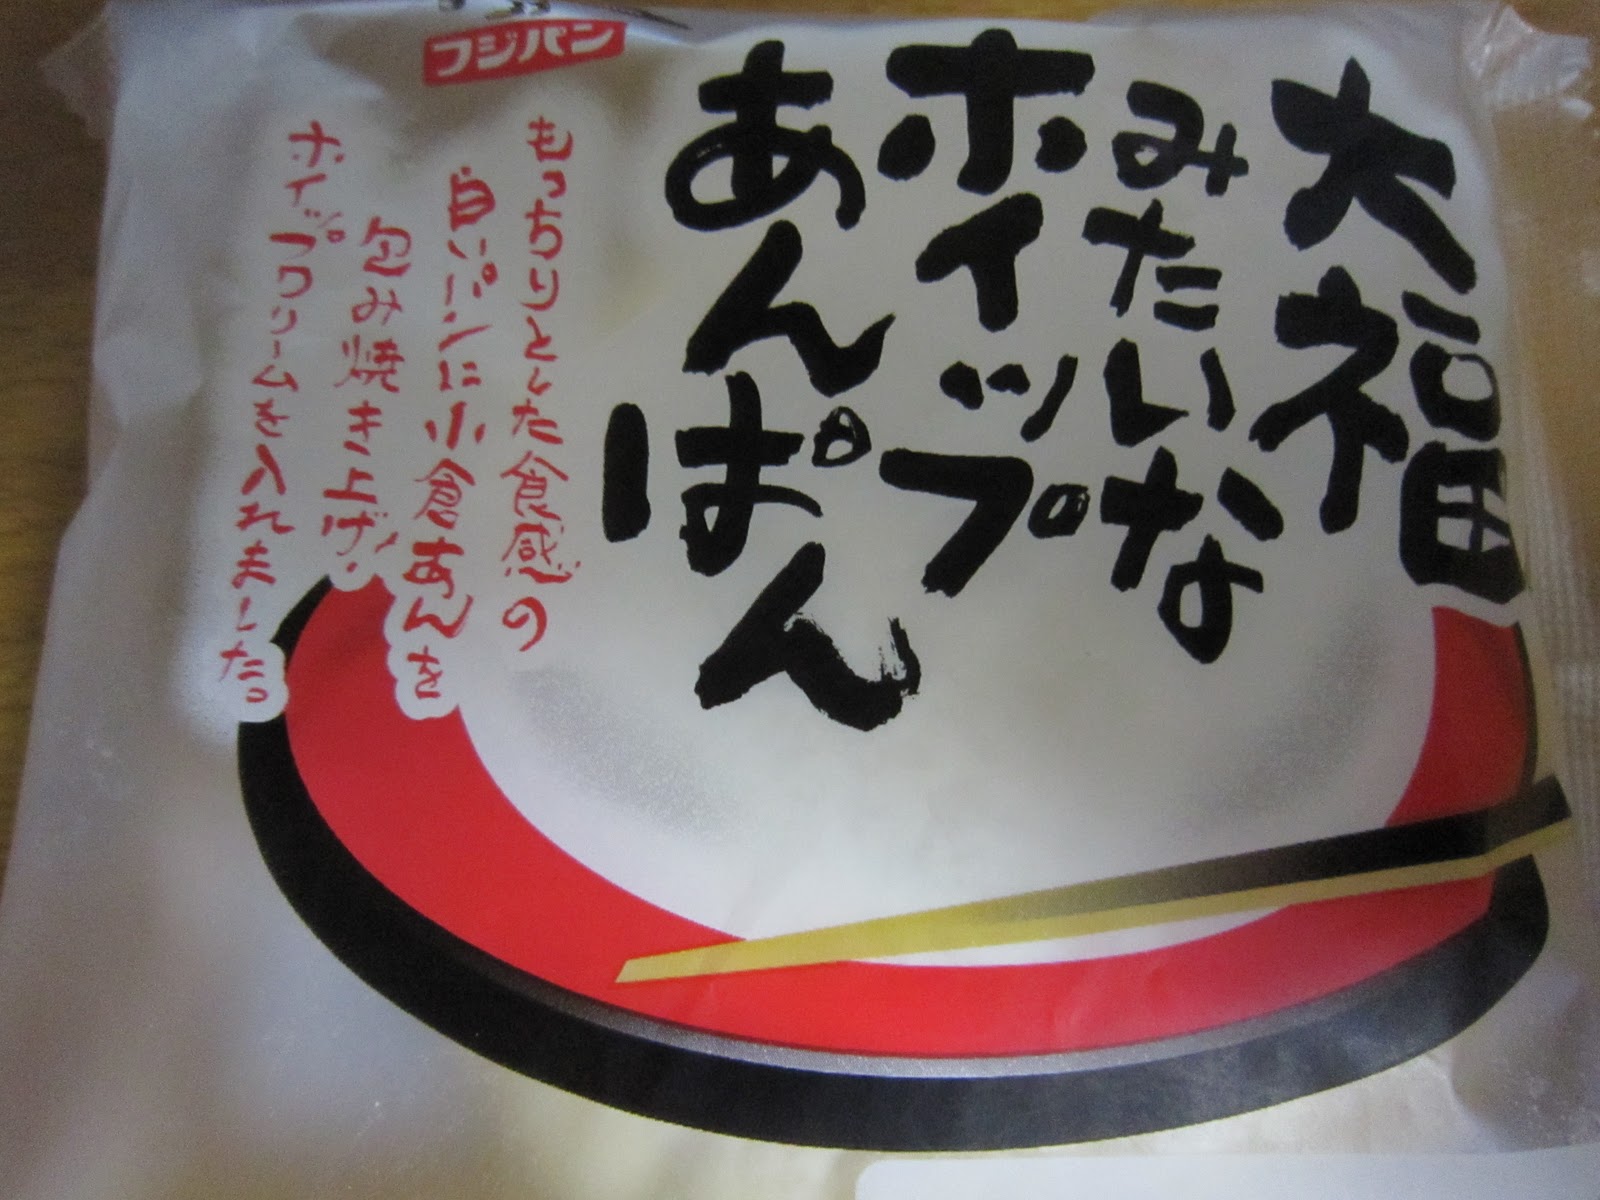 フジパン
大福
みたいな
ホイップ
あんぱん
もっちりとした食感の
白いパンに小倉あんを
包み焼き上げ、
ホイップクリームを入れました。